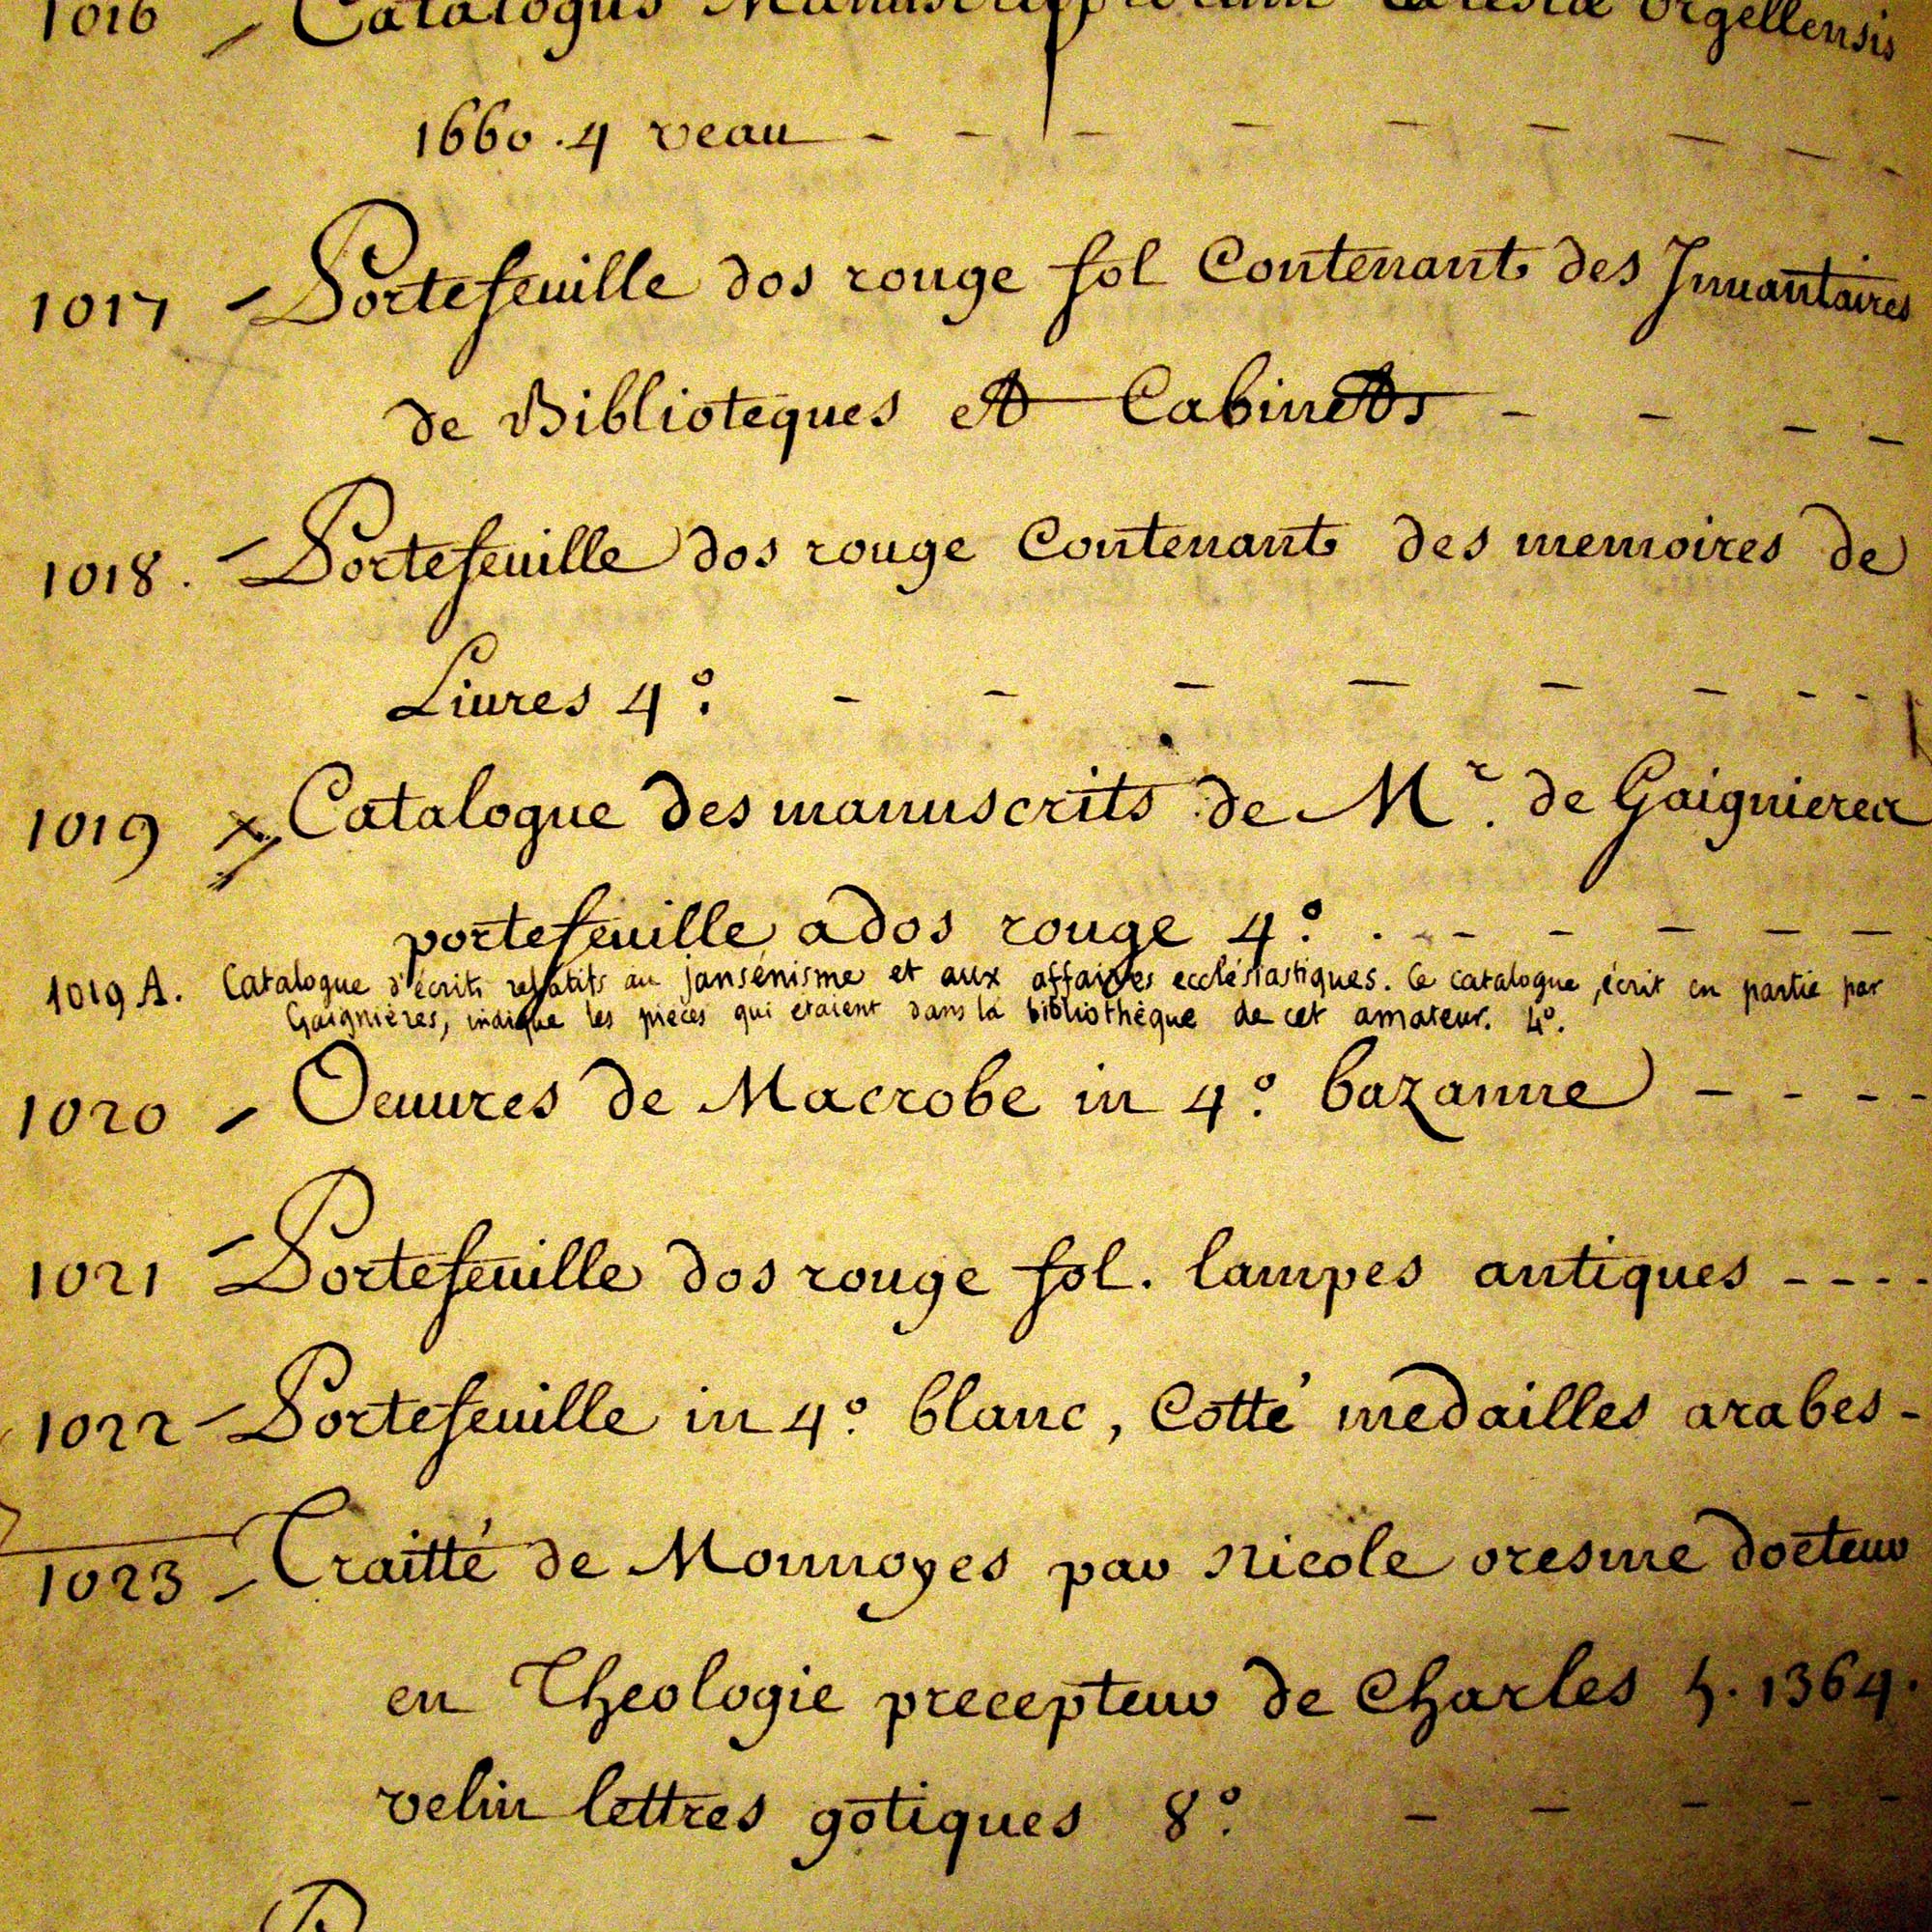 1016 Catalogus Urgellensis
1660 . 4 veau - - - - - - - - -
1017 - Portefeuille dos rouge fol Contenant des Inuantaires
de Biblioteques et Cabinets - - - -
1018 . - Portefeuille dos rouge Contenant des memoires de
Liures 4° - - - - - - - -
1019 Catalogue des manuscrits de Mr. de Gaignieres
portefeuille a dos rouge 4° . - - - - - -
1019 A. Catalogue d'écrits relatifs au jansénisme et aux affaires ecclésiastiques. Ce catalogue, écrit en partie par
Gaignières, indique les pièces qui etaient dans la bibliothèque de cet amateur. 4°.
1020 - Oeuures de Macrobe in 4° bazanne - - - -
1021 - Portefeuille dos rouge fol. lampes antiques - - - -
1022 - Portefeuille in 4° blanc, Cotté medailles arabes -
1023 - Traitté de Monnoyes par Nicole oresme docteur
en Theologie precepteur de Charles 5. 1364.
velin lettres gotiques 8° - - - - -